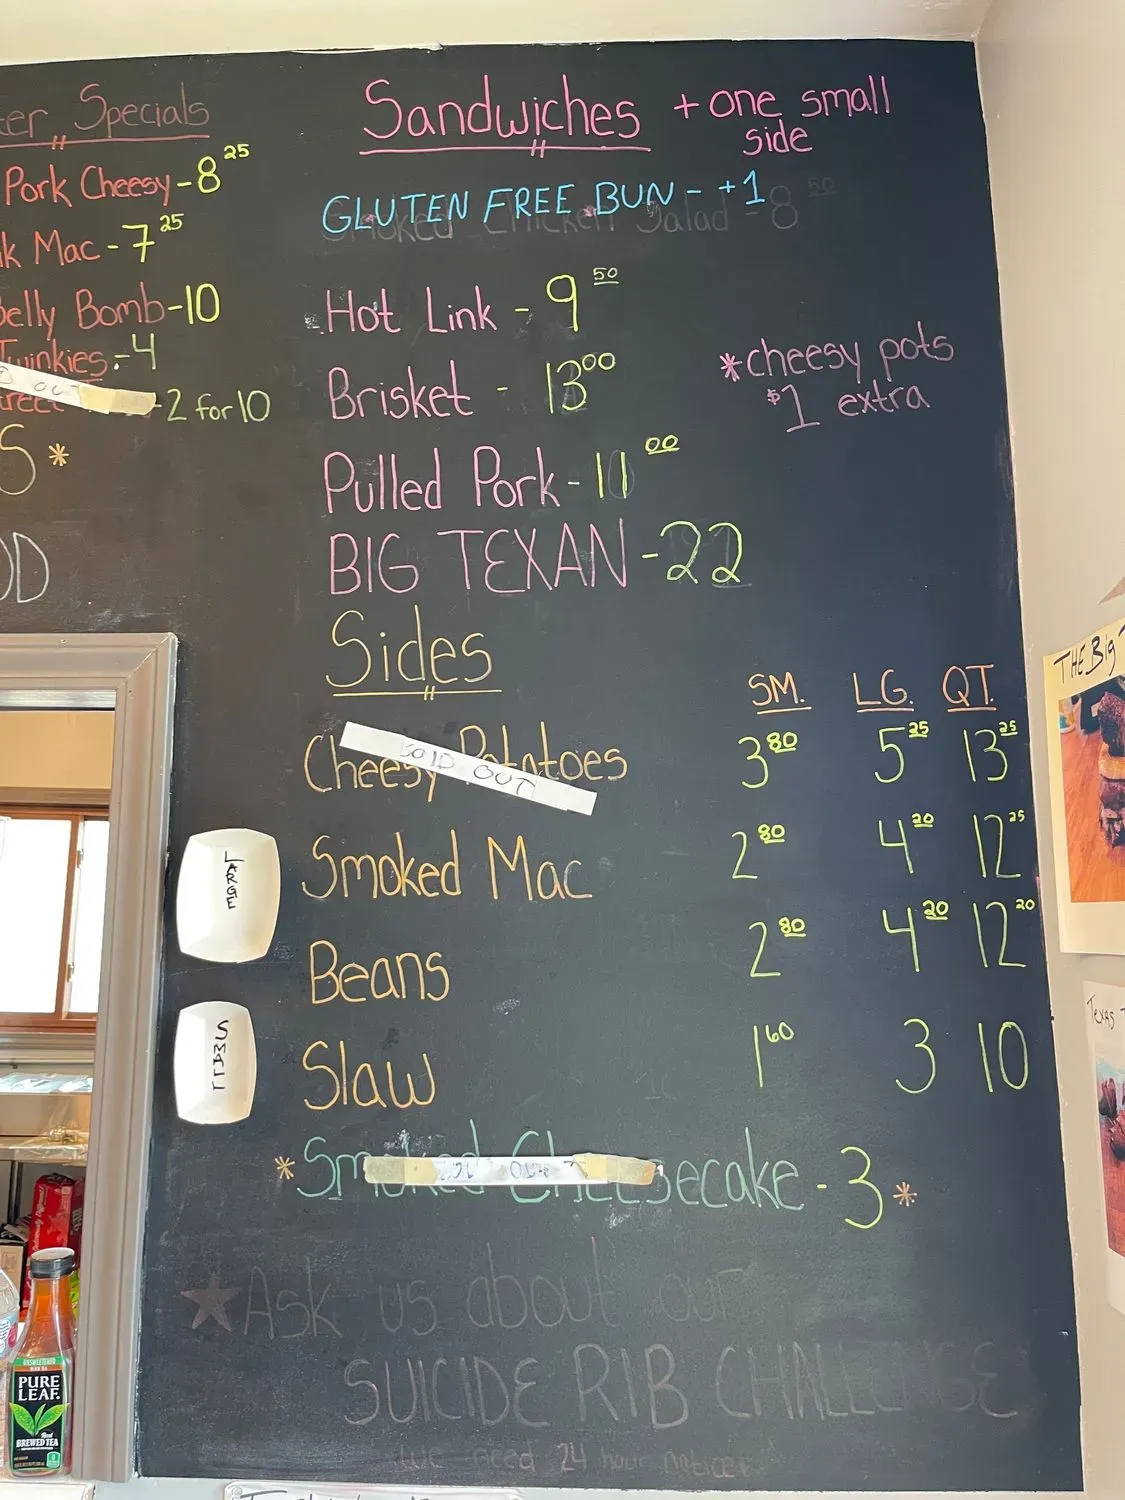 Specials
Pork Cheesy - 8 25
Mac - 7 25
Belly Bomb - 10
Twinkies - 4
OUT
- 2 for 10
S *
OD
Sandwiches + one small
side
GLUTEN FREE BUN - +1
Smoked Chicken Salad - 8 50
Hot Link - 9 50
Brisket - 13 00
*cheesy pots
$1 extra
Pulled Pork - 11 00
BIG TEXAN - 22
Sides
SM. LG. QT.
Cheesy Potatoes 3 80 5 25 13 25
SOLD OUT
Smoked Mac 2 80 4 20 12 25
Beans 2 80 4 20 12 20
Slaw 1 60 3 10
*Smoked Cheesecake - 3*
OUT
LARGE
SMALL
★Ask us about our
SUICIDE RIB CHALLENGE
we need 24 hour notice
THE Big
Texas
UNSWEETENED
PURE
LEAF
BREWED TEA